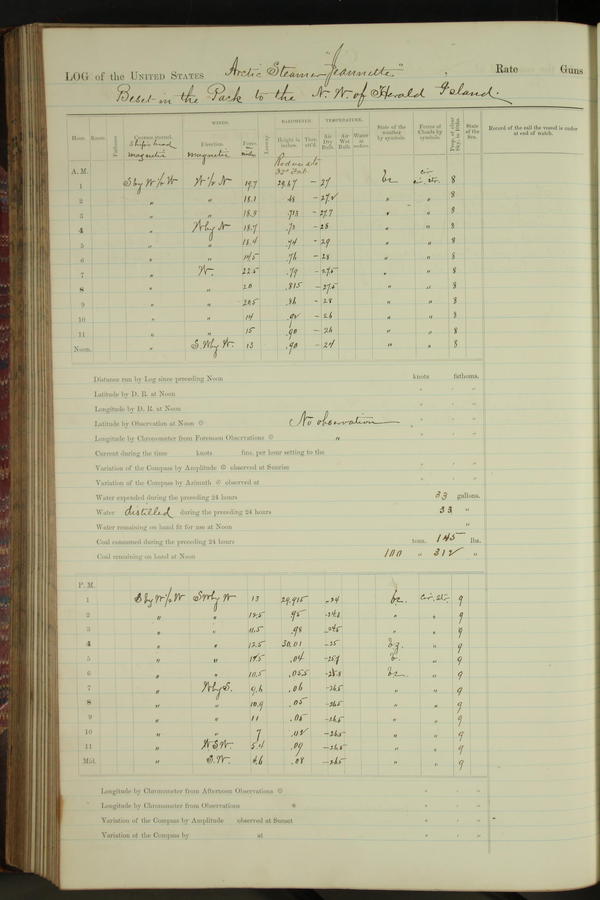 LOG of the UNITED STATES Arctic Steamer "Jeannette" Rate Guns
Beset in the Pack to the N. W. of Herald Island.
WINDS. BAROMETER. TEMPERATURE.
Hour. Knots. Fathoms. Courses steered. Direction. Force. Leeway. Height in inches. Ther. att'd. Air Dry Bulb. Air Wet Bulb. Water at surface. State of the weather by symbols. Forms of Clouds by symbols. Prop. of clear Sky, in 10ths. State of the Sea. Record of the sail the vessel is under at end of watch.
Ship's head magnetic magnetic
Reduced to 32° Fah.
A. M.
1 S by W ½ W W ½ N 19.7 29.67 -27 bc cir. cir. str. 8
2 " " 18.1 " " 8
3 " " 18.3 .713 -27.7 " " 8
4 " W by N 18.7 -28 " " 8
5 " " 18.4 .74 -29 " " 8
6 " " 14.5 .76 -28 " " 8
7 " W. 22.5 .79 -27.5 " " 8
8 " " 20 .815 -27.5 " " 8
9 " " 20.5 .86 -28 " " 8
10 " " 14 -26 " " 8
11 " " 15 .90 -26 " " 8
Noon. " S. W by W. 13 .90 -24 " " 8
Distance run by Log since preceding Noon knots fathoms.
Latitude by D. R. at Noon " " "
Longitude by D. R. at Noon " " "
Latitude by Observation at Noon ☉ No observation " " "
Longitude by Chronometer from Forenoon Observations ☉ " " " "
Current during the time knots fms. per hour setting to the
Variation of the Compass by Amplitude ☉ observed at Sunrise " " "
Variation of the Compass by Azimuth ☉ observed at " " "
Water expended during the preceding 24 hours 33 gallons.
Water distilled during the preceding 24 hours 33 "
Water remaining on hand fit for use at Noon "
Coal consumed during the preceding 24 hours tons. 145 lbs.
Coal remaining on hand at Noon 100 " 312 "
P. M.
1 S by W ½ W SW by W 13 29.915 -24 bc. Cir. str. 9
2 " " 12.5 .95 " " 9
3 " " 11.5 .98 -24.5 " " 9
4 " " 12.5 30.01 -25 " 9
5 " " .04 b. " 9
6 " " 10.5 .055 bc. " 9
7 " W by S. 9.6 .06 -26.5 " " 9
8 " " 10.9 .05 -26.5 " " 9
9 " " 11 .05 -26.5 " " 9
10 " " 7 -26.5 " " 9
11 " W S W. 5.4 .09 -26.5 " " 9
Mid. " S. W. 4.6 .08 -26.5 " " 9
Longitude by Chronometer from Afternoon Observations ☉ " " "
Longitude by Chronometer from Observations * " " "
Variation of the Compass by Amplitude observed at Sunset " " "
Variation of the Compass by at " " "